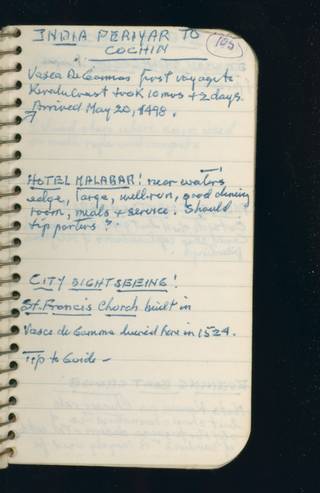 INDIA PERIYAR TO
COCHIN
105
Vasca De Gammas first voyage to
Kerala Coast took 10 mos + 2 days.
Arrived May 20, 1498.
HOTEL MALABAR! near water's
edge, large, well-run, good dining
room, meals + service. Should
tip porters?
CITY SIGHTSEEING!
St. Francis Church built in
Vasco de Gamma buried here in 1524.
Tip to Guide -